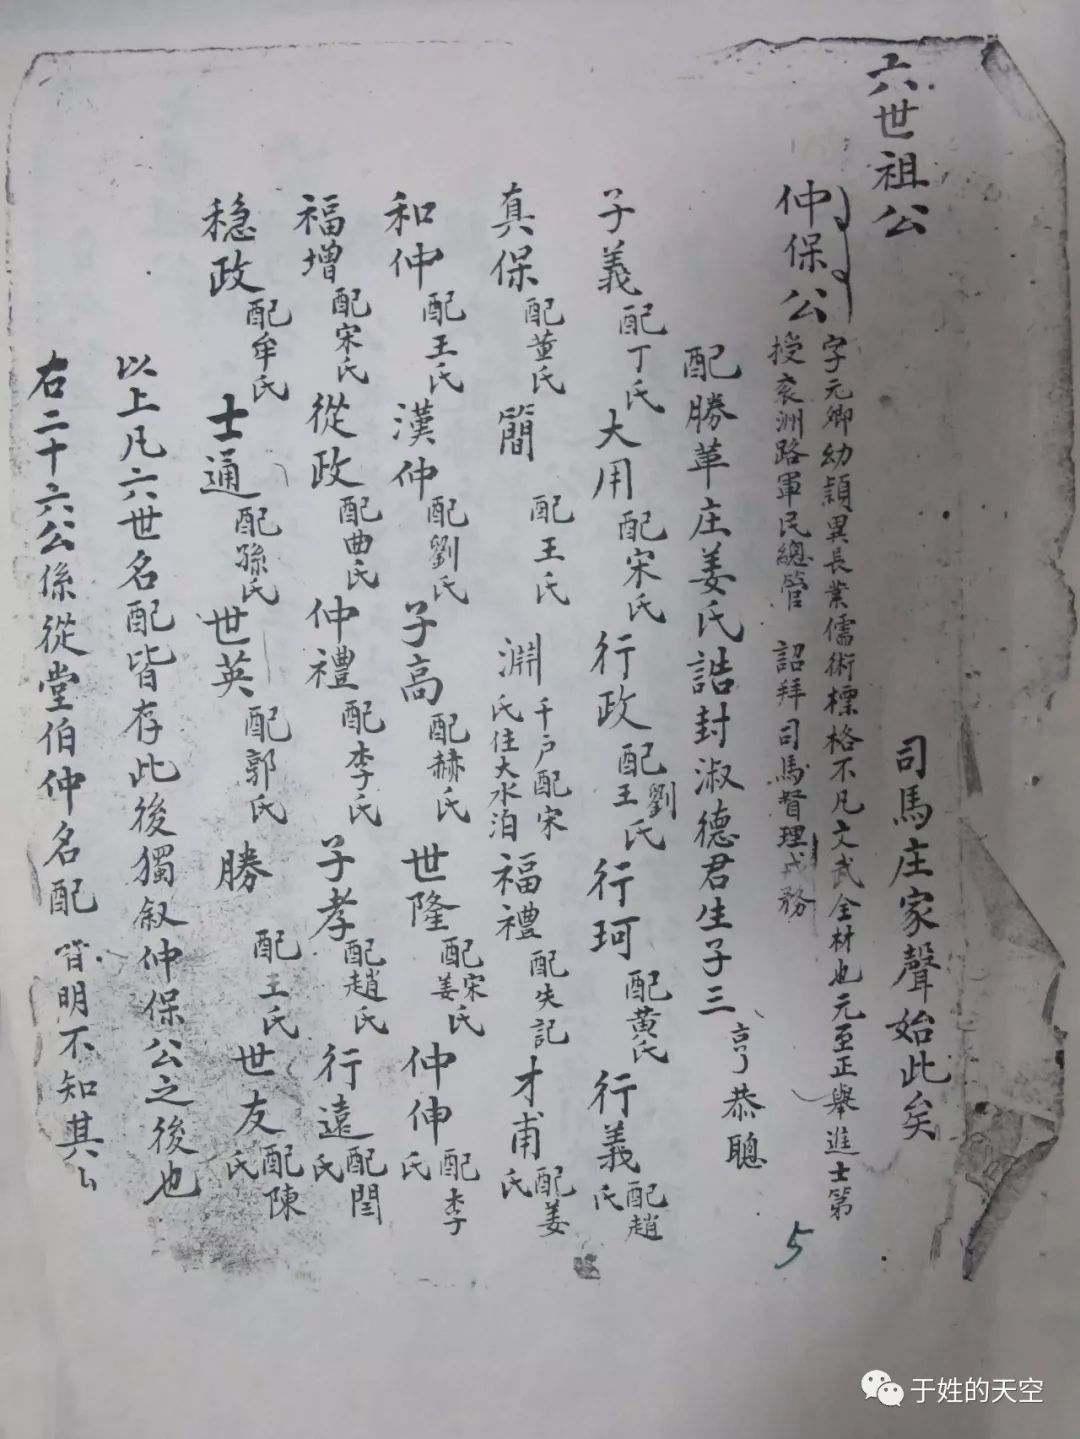 六世祖公
司馬庄家聲始此矣
仲保公
字元卿幼穎異長業儒術標格不凡文武全材也元至正舉進士第
授袁洲路軍民總管 詔拜司馬督理戎務
配勝革庄姜氏誥封淑德君生子三 亨 恭 聰
子義 配丁氏 大用 配宋氏 行政 配劉王氏 行珂 配黄氏 行義 配趙氏
真保 配董氏 簡 配王氏 淵 千户配宋氏住大水泊 福禮 配失記 才甫 配姜氏
和仲 配王氏 漢仲 配劉氏 子高 配赫氏 世隆 配宋姜氏 仲伸 配李氏
福增 配宋氏 從政 配曲氏 仲禮 配李氏 子孝 配趙氏 行遠 配閆氏
穩政 配牟氏 士通 配孫氏 世英 配郭氏 勝 配王氏 世友 配陳氏
以上凡六世名配皆存此後獨叙仲保公之後也
右二十六公係從堂伯仲名配皆明不知其
5
于姓的天空